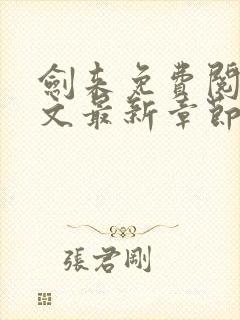 劍来免費閱
文最新章節
張君剛